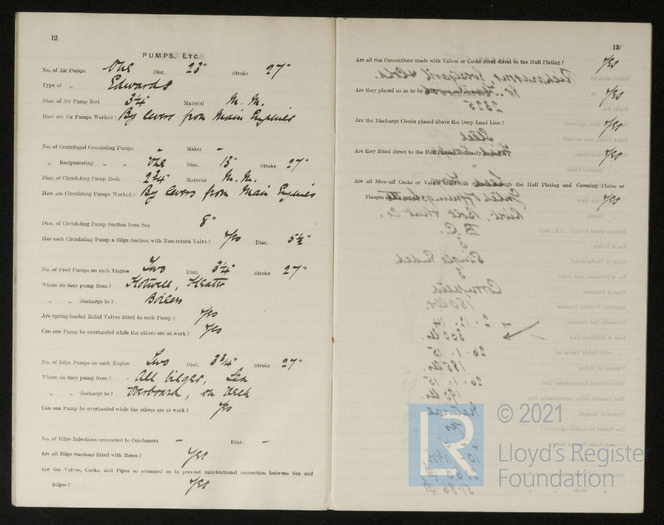 12
PUMPS, ETC.
No. of Air Pumps One Diar. 23" Stroke 27"
Type of „ Edwards
Diar. of Air Pump Rod 3¼" Material M. M.
How are Air Pumps Worked? By levers from Main Engines
No. of Centrifugal Circulating Pumps - Maker -
„ Reciprocating „ „ One Diar. 13" Stroke 27"
Diar. of Circulating Pump Rods 2¾" Material M. M.
How are Circulating Pumps Worked? By levers from Main Engines
Diar. of Circulating Pump Suction from Sea 8"
Has each Circulating Pump a Bilge Suction with Non-return Valve? Yes Diar. 5½"
No. of Feed Pumps on each Engine Two Diar. 3¼" Stroke 27"
Where do they pump from? Hotwell,
„ „ discharge to? Boilers
Are Spring-loaded Relief Valves fitted to each Pump? Yes
Can one Pump be overhauled while the others are at work? Yes
No. of Bilge Pumps on each Engine Two Diar. 3¾" Stroke 27"
Where do they pump from? All bilges, Sea
„ „ discharge to? Overboard, on deck
Can one Pump be overhauled while the others are at work? Yes
No. of Bilge Injections connected to Condensers - Diar. -
Are all Bilge Suctions fitted with Roses? Yes
Are the Valves, Cocks, and Pipes so arranged as to prevent unintentional connection between Sea and
Bilges? Yes
13
Are all Sea Connections made with Valves or Cocks fitted direct to the Hull Plating? Yes
Are they placed so as to be Yes
Are the Discharge Chests placed above the Deep Load Line? Yes
Are they fitted direct to the Hull Plating Yes
Are all Blow-off Cocks or Valves through the Hull Plating and Covering Plates or
Flanges Yes
© 2021
LR
Lloyd's Register
Foundation